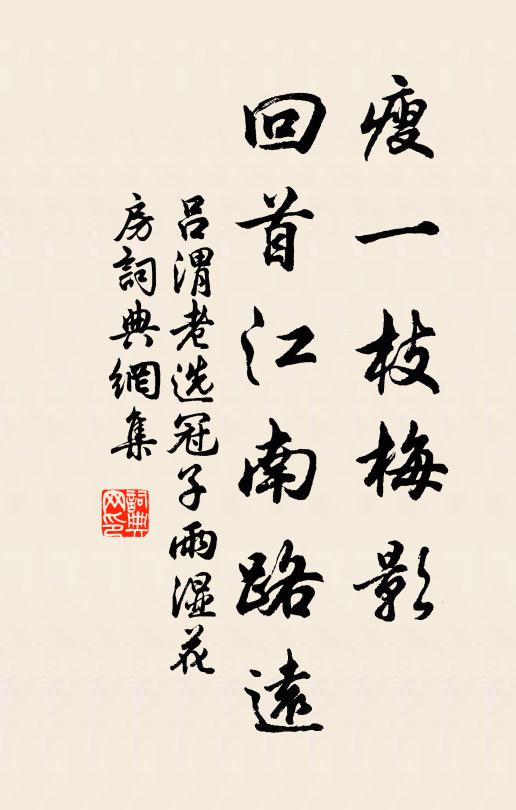 瘦一枝梅影
回首江南路遠
呂渭老选冠子雨濕花
房詞典網集
詞典网印